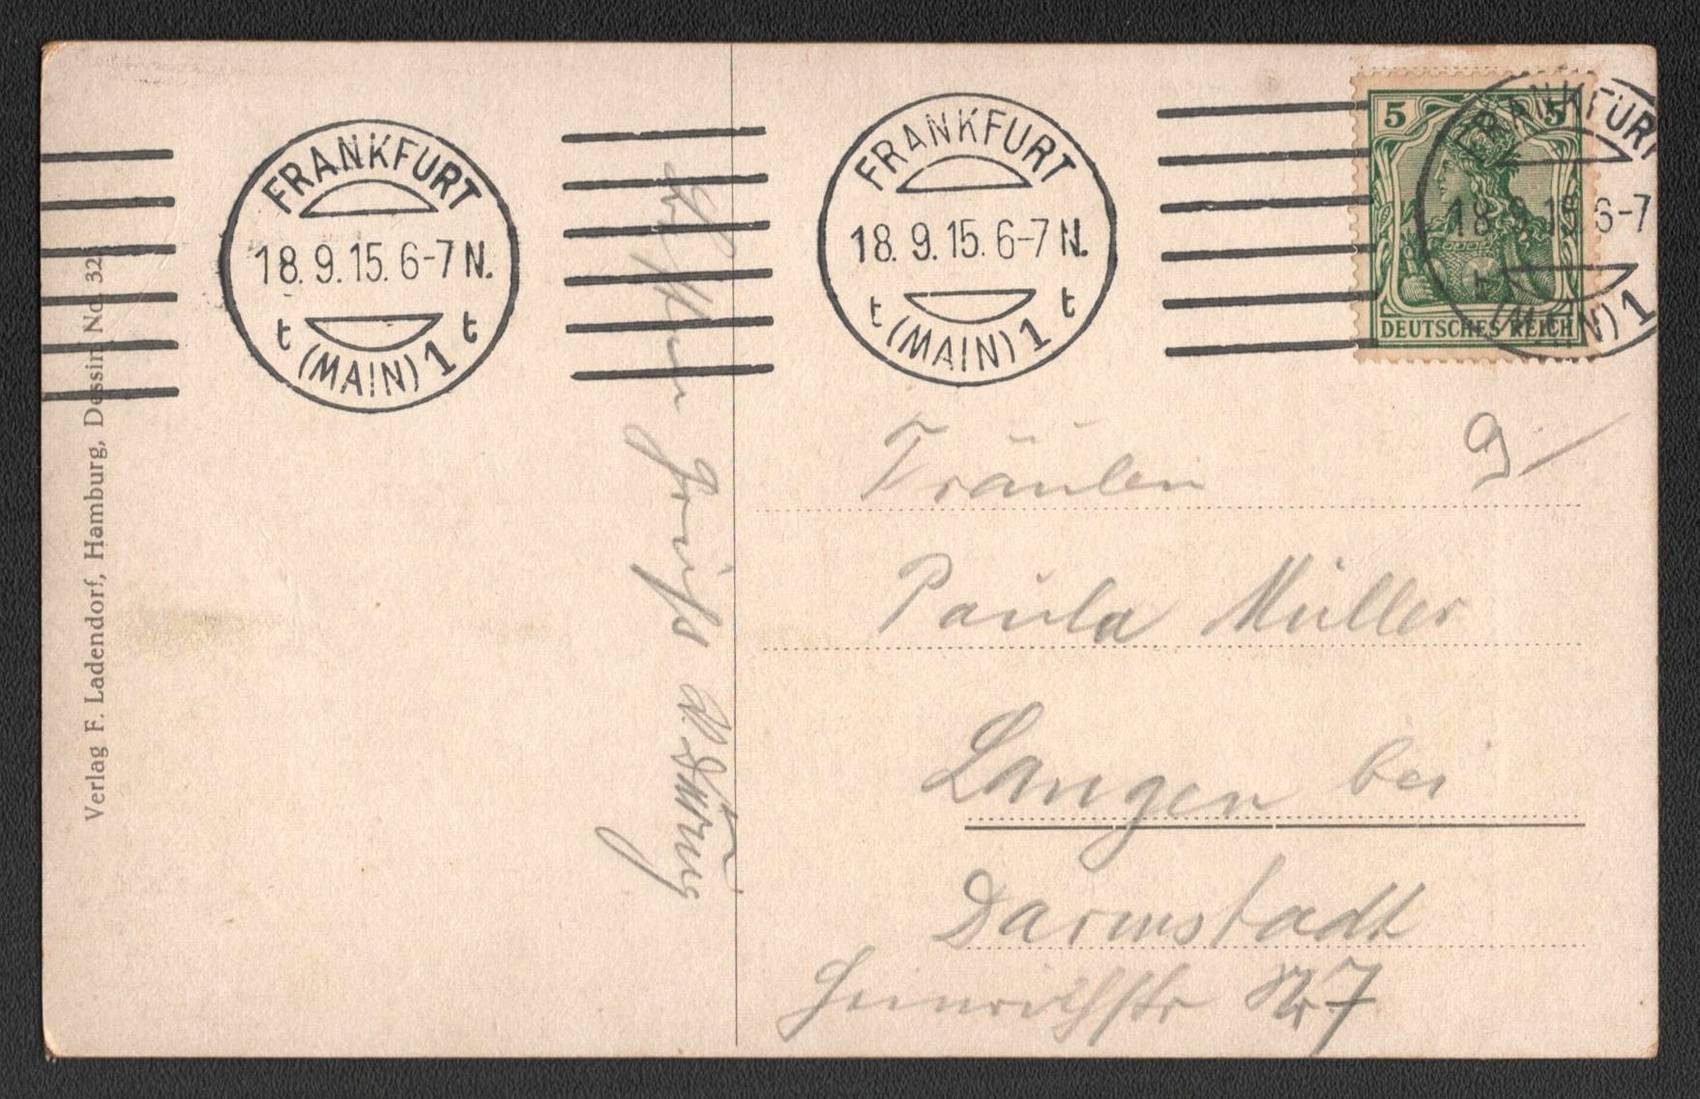 Verlag F. Ladendorf, Hamburg, Dessin No. 32
FRANKFURT
18.9.15.6-7 N.
t (MAIN) 1 t
FRANKFURT
18.9.15.6-7 N.
t (MAIN) 1 t
5 5
DEUTSCHES REICH
FRANKFURT
18.9.15 6-7
t (MAIN) 1
Gruß
9
Fräulen
Paula Müller
Langen bei
Darmstadt
Heinrichstr Nr 7